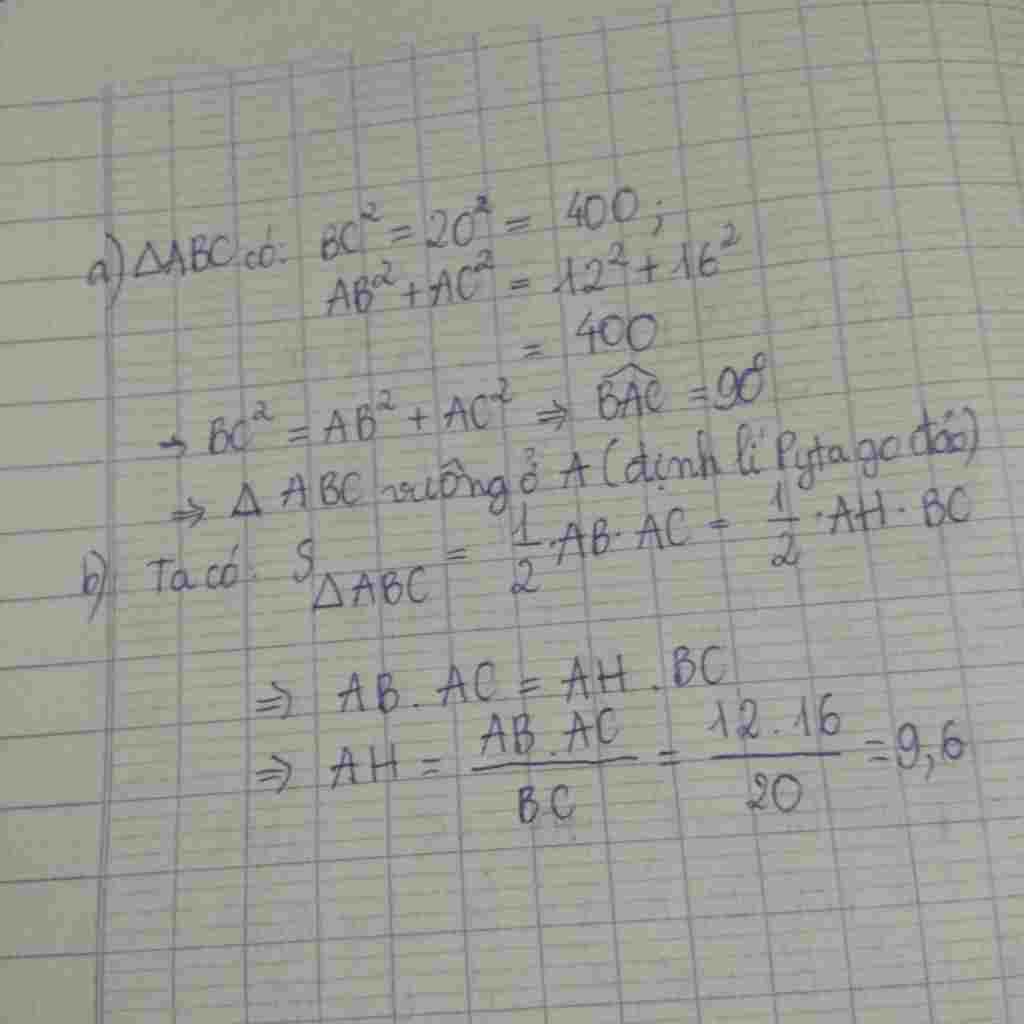 a) ΔABC có: BC² = 20² = 400;
AB² + AC² = 12² + 16²
= 400
→ BC² = AB² + AC² ⇒ \widehat{BAC} = 90⁰
⇒ Δ ABC vuông ở A (định lí Pytago đảo)
b) Ta có: S_{ΔABC} = \frac{1}{2}.AB.AC = \frac{1}{2}.AH.BC
⇒ AB.AC = AH.BC
⇒ AH = \frac{AB.AC}{BC} = \frac{12.16}{20} = 9,6